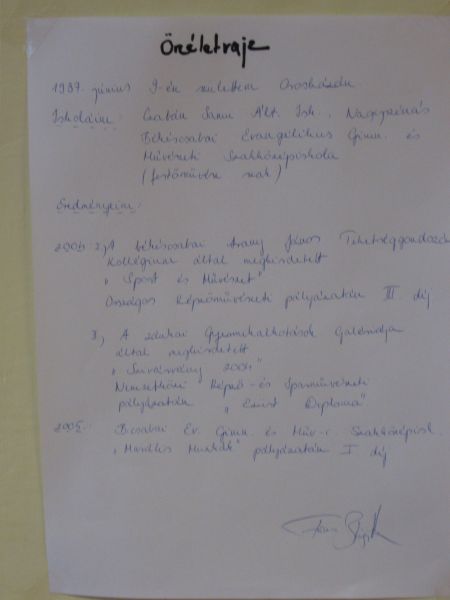 Önéletrajz
1987. június 9-én születtem Orosházán.
Iskoláim: Czabán Samu Ált. Isk., Nagyszénás
Békéscsabai Evangélikus Gimn. és
Művészeti Szakközépiskola
(festőművész szak)
Eredményeim:
2004: I, A békéscsabai Arany János Tehetséggondozó
Kollégium által meghirdetett
„Sport és Művészet"
Országos Képzőművészeti pályázatán III. díj
II, A zánkai Gyermekalkotások Galériája
által meghirdetett
„Szivárvány 2004"
Nemzetközi Képző- és Iparművészeti
pályázatán „Ezüst Diploma"
2005: B.csabai Ev. Gimn. és Műv-i. Szakközépisk.
Munkák" pályázatán I. díj